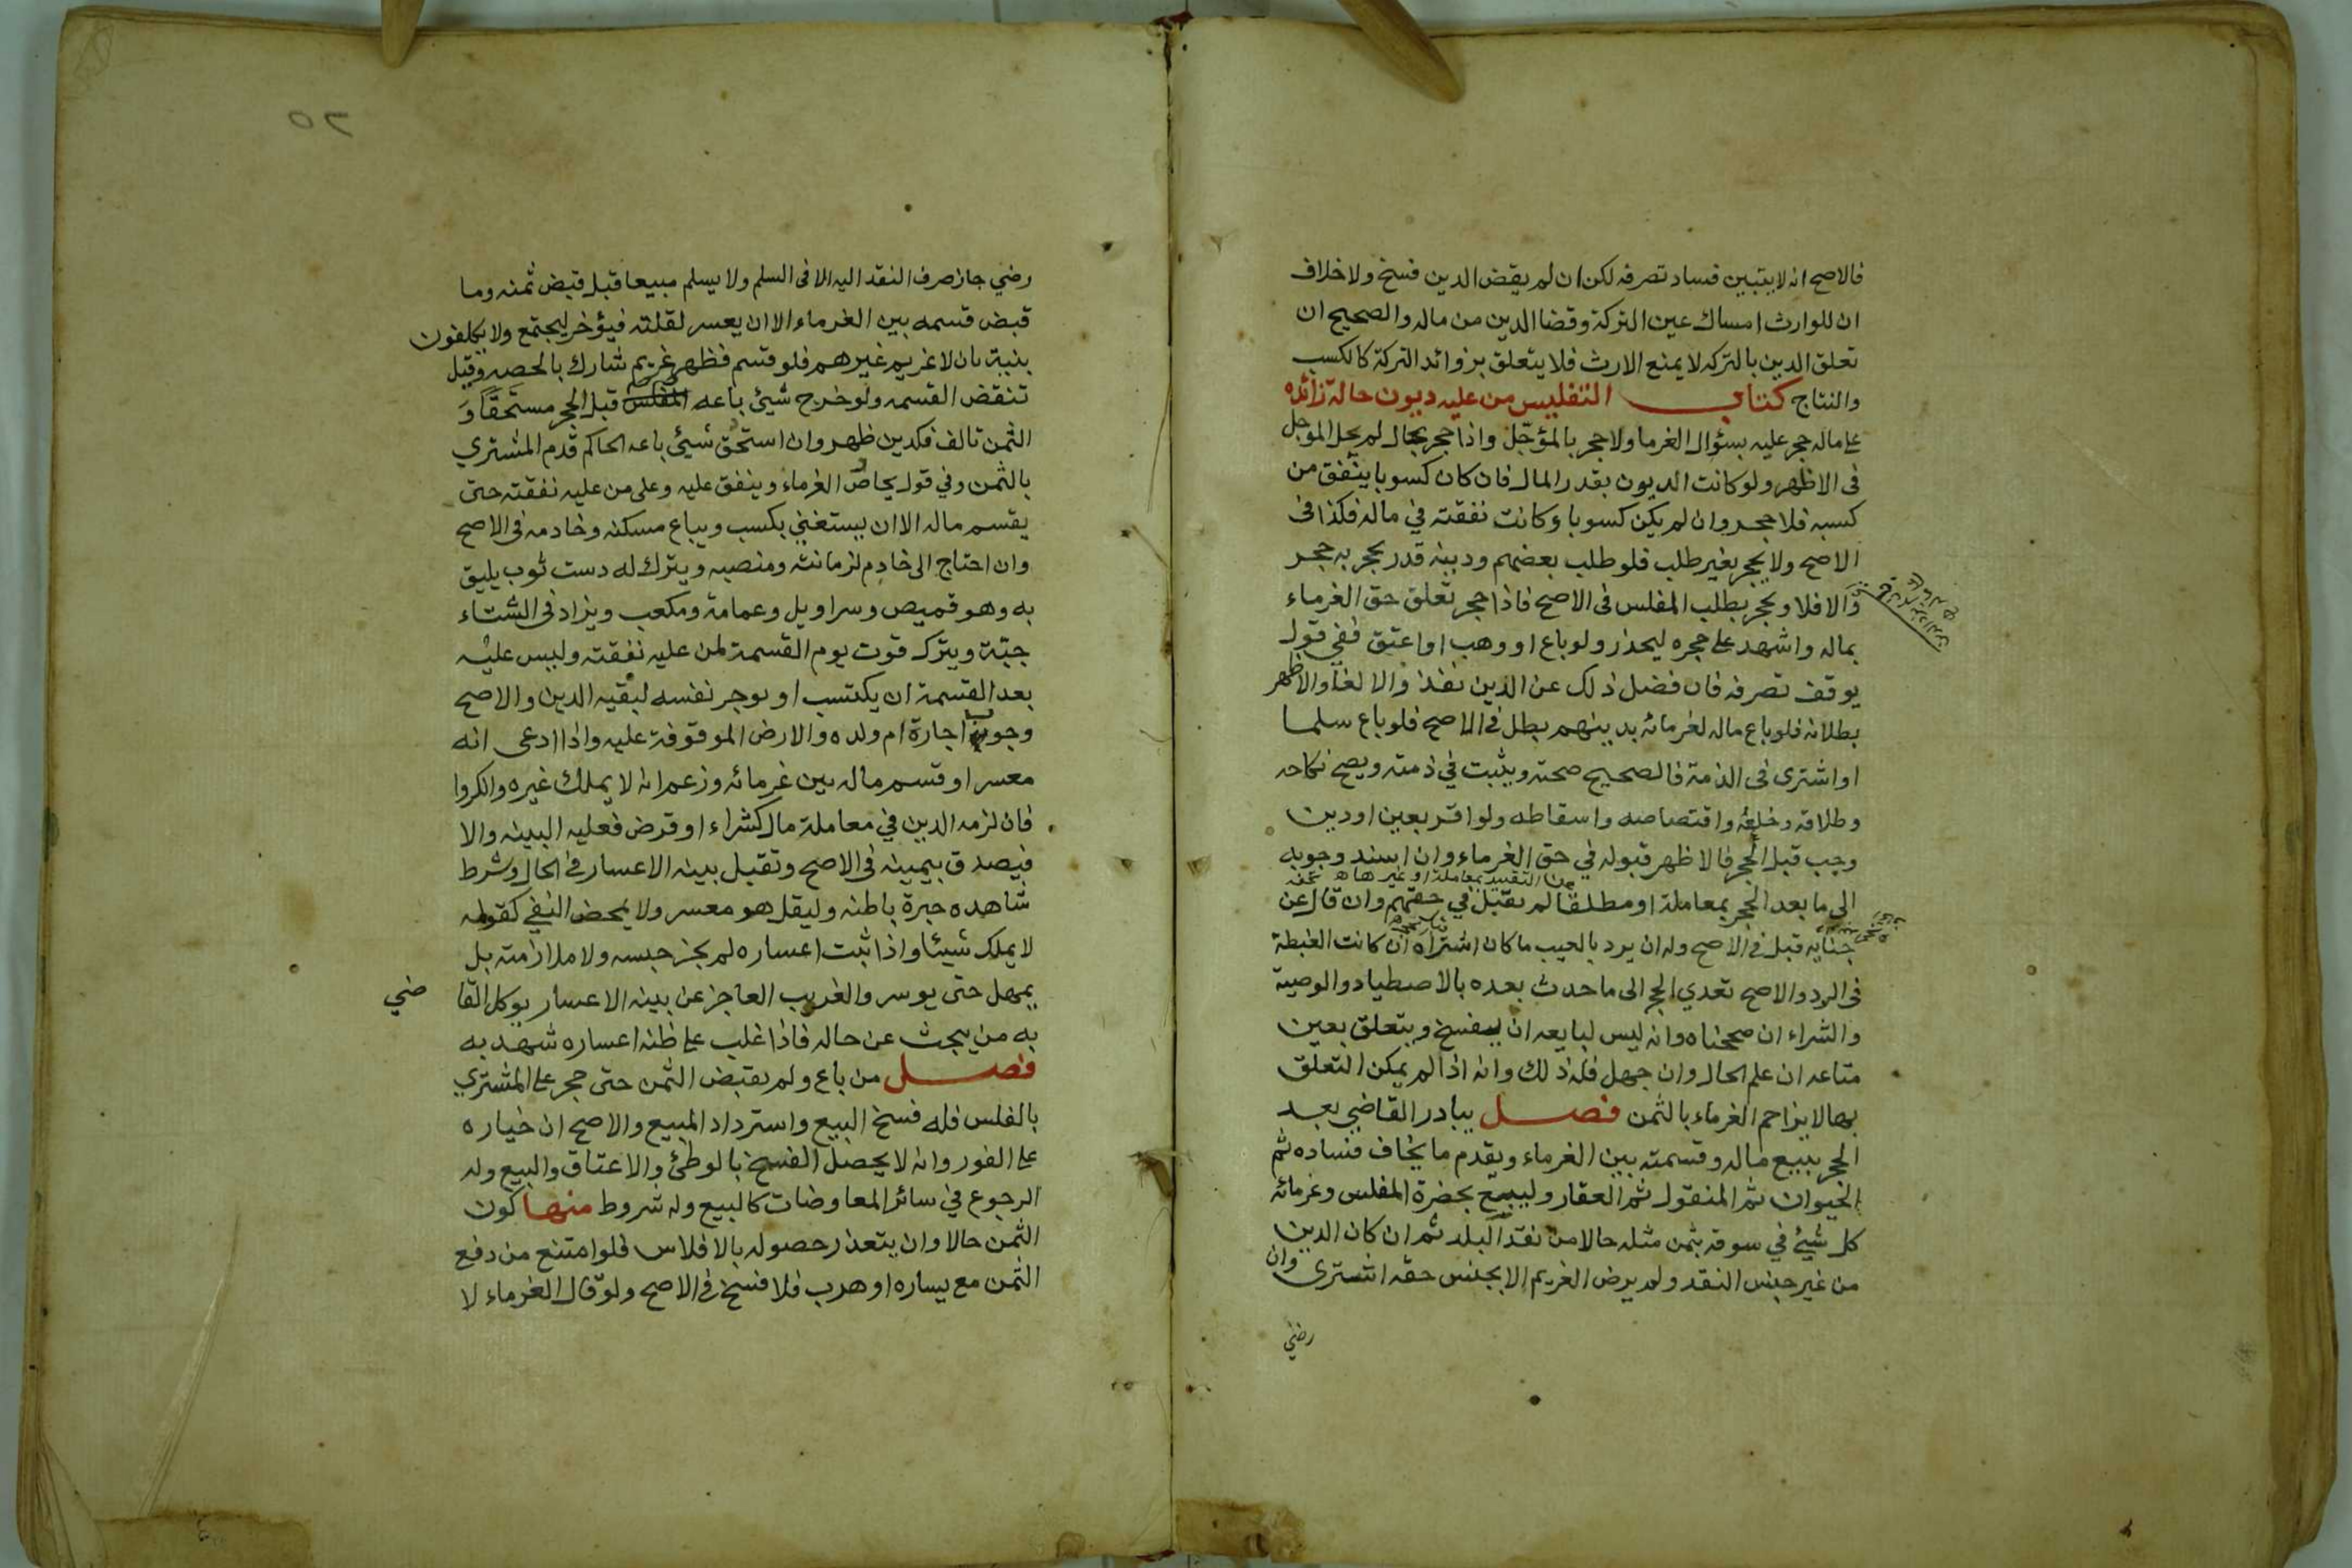 فالاصح انه لا يتبين فساد تصرفه لكن ان لم يقض الدين فسخ ولا خلاف
ان للوارث امساك عين التركة وقضا الدين من ماله والصحيح ان
تعلق الدين بالتركه لا يمنع الارث فلا يتعلق بزوائد التركة كالكسب
والنتاج كتاب التفليس من عليه ديون حالة زائده
على ماله حجر عليه بسؤال الغرما ولا حجر بالمؤجّل واذا حجر بحال لم يحل الموجل
فى الاظهر ولو كانت الديون بقدر المال فان كان كسوبا ينفق من
كسبه فلا حجر وان لم يكن كسوبا وكانت نفقته في ماله فكذا فى
الاصح ولا يحجر بغير طلب فلو طلب بعضهم ودينه قدر يحجر به حجر
والا فلا ويحجر بطلب المفلس فى الاصح فاذا حجر تعلق حق الغرماء
بماله واشهد على حجره ليحذر ولو باع او وهب او اعتق ففي قول
يوقف تصرفه فان فضل ذلك عن الدين نفذ والا لغا والاظهر
بطلانه فلو باع ماله لغرمائه بدينهم بطل في الاصح فلو باع سلما
او اشترى فى الذمة فالصحيح صحته ويثبت في ذمته ويصح نكاحه
وطلاقه وخلعه واقتصاصه واسقاطه ولو اقر بعين او دين
وجب قبل الحجر فالاظهر قبوله في حق الغرماء وان اسند وجوبه
عن التقييد بمعاملة او غيرها اه تحفه
الى ما بعد الحجر بمعاملة او مطلقا لم يقبل في حقهم وان قال عن
جنايه قبل في الاصح وله ان يرد بالعيب ما كان اشتراه ان كانت الغبطة
فى الرد والاصح تعدي الحجر الى ما حدث بعده بالاصطياد والوصية
والشراء ان صححناه وانه ليس لبايعه ان يفسخ ويتعلق بعين
متاعه ان علم الحال وان جهل فله ذلك وانه اذا لم يمكن التعلق
بها لا يزاحم الغرماء بالثمن فصل يبادر القاضي بعد
الحجر ببيع ماله وقسمته بين الغرماء ويقدم ما يخاف فساده ثم
الحيوان ثم المنقول ثم العقار وليبيع بحضرة المفلس وغرمائه
كل شيئ في سوقه بثمن مثله حالا من نقد البلد ثم ان كان الدين
من غير جنس النقد ولم يرض الغريم الا بجنس حقه اشترى وان
رضي
٥٢
رضي جاز صرف النقد اليه الا فى السلم ولا يسلم مبيعا قبل قبض ثمنه وما
قبض قسمه بين الغرماء الا ان يعسر لقلته فيؤخر ليجتمع ولا يكلفون
بنية بان لا غريم غيرهم فلو قسم فظهر غريم شارك بالحصه وقيل
تنقض القسمه ولو خرج شيئ باعه المفلس قبل الحجر مستحقا و
الثمن تالف فكدين ظهر وان استحق شيئ باعه الحاكم قدم المشتري
بالثمن وفي قول يحاص الغرماء وينفق عليه وعلى من عليه نفقته حتى
يقسم ماله الا ان يستغني بكسب ويباع مسكنه وخادمه فى الاصح
وان احتاج الى خادم لزمانته ومنصبه ويترك له دست ثوب يليق
به وهو قميص وسراويل وعمامة ومكعب ويزاد فى الشتاء
جبّة ويترك قوت يوم القسمة لمن عليه نفقته وليس عليه
بعد القسمة ان يكتسب او يوجر نفسه لبقيه الدين والاصح
وجوب اجارة ام ولده والارض الموقوفة عليه واذا ادعى انه
معسر او قسم ماله بين غرمائه وزعم انه لا يملك غيره وانكروا
فان لزمه الدين في معاملة مال كشراء او قرض فعليه البينه والا
فيصدق بيمينه فى الاصح وتقبل بينه الاعسار في الحال وشرط
شاهده خبرة باطنه وليقل هو معسر ولا يمحض النفي كقوله
لا يملك شيئا واذا ثبت اعساره لم يجز حبسه ولا ملازمته بل
يمهل حتى يوسر والغريب العاجز عن بينه الاعسار يوكل القا ضي
به من يبحث عن حاله فاذا غلب على ظنه اعساره شهد به
فصل من باع ولم يقبض الثمن حتى حجر على المشتري
بالفلس فله فسخ البيع واسترداد المبيع والاصح ان خياره
على الفور وانه لا يحصل الفسخ بالوطئ والاعتاق والبيع وله
الرجوع في سائر المعاوضات كالبيع وله شروط منها كون
الثمن حالا وان يتعذر حصوله بالافلاس فلو امتنع من دفع
الثمن مع يساره او هرب فلا فسخ في الاصح ولو قال الغرماء لا